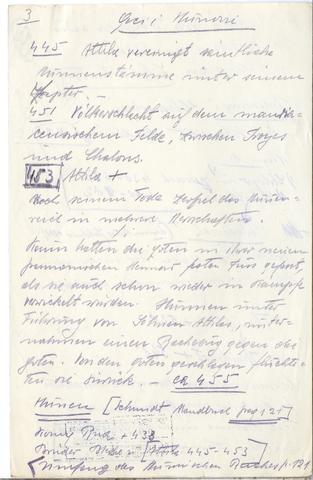 3 Goti i Hunorri
445 Attila vereinigt sämtliche
Hunnenstämme unter seinem
Szepter. –
451 Völkerschlacht auf dem
Felde, zwischen Troyes
und Chalons.
453 Attila +
Nach seinem Tode zerfiel das Hunnen-
reich in mehrere Herrschaften.
Kaum hatten die Goten in ihrer neuen
pannonischen Heimat festen Fuss gefasst,
als sie auch schon wieder in Kämpfe
verwickelt wurden. Hunnen unter
Führung von Söhnen Attilas, unter-
nahmen einen Rachezug gegen die
Goten. Von den Goten geschlagen flüchte-
ten sie zurück. – ca 455
Hunnen [Schmidt Handbuch pag 125]
König Rua + 433
Bruder Attila 445-453
[Umfang des Hunnischen Reiches p. 121